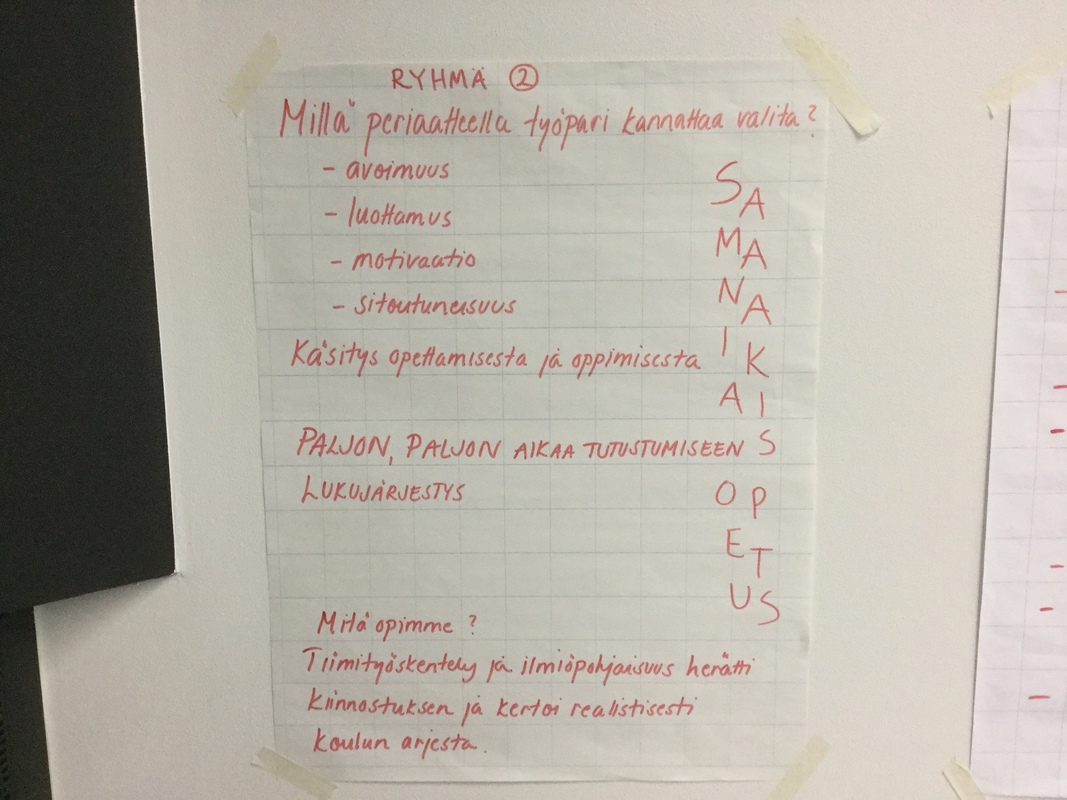 RYHMÄ ②
Millä periaatteella työpari kannattaa valita?
- avoimuus
- luottamus
- motivaatio
- sitoutuneisuus
Käsitys opettamisesta ja oppimisesta
PALJON, PALJON AIKAA TUTUSTUMISEEN
LUKUJÄRJESTYS
SAMANAIKAIS
OPETUS
Mitä opimme?
Tiimityöskentely ja ilmiöpohjaisuus herätti
kiinnostuksen ja kertoi realistisesti
koulun arjesta.